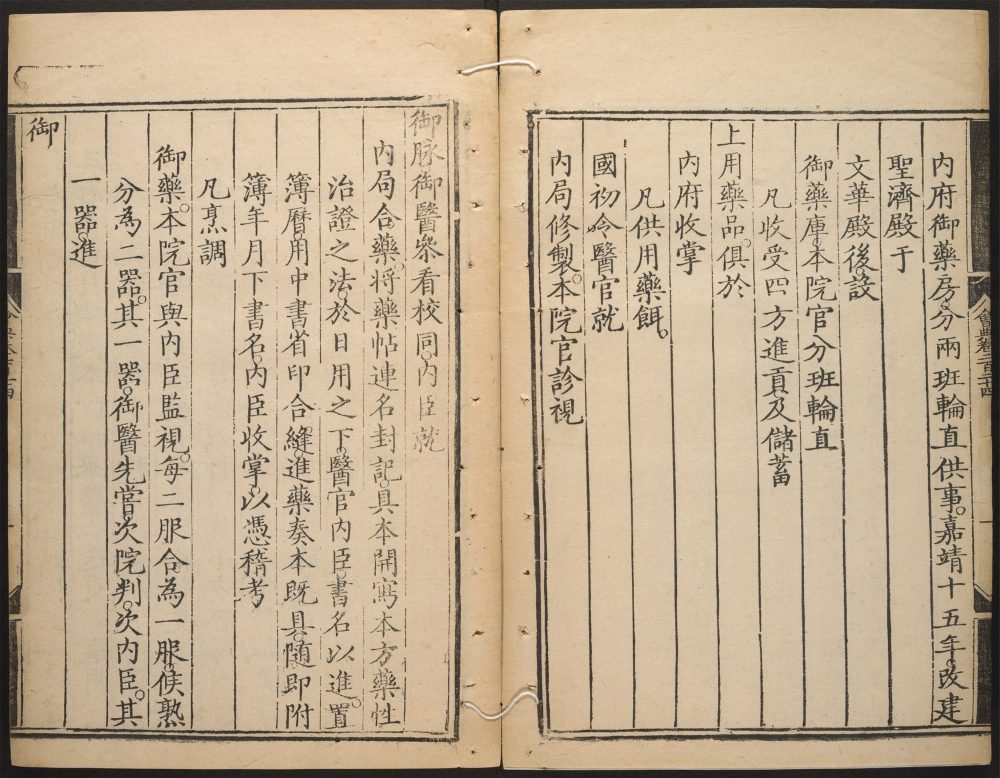 內府御藥房。分兩班輪直供事。嘉靖十五年。改建
聖濟殿于
文華殿後。設
御藥庫。本院官分班輪直
凡收受四方進貢。及儲蓄
上用藥品。俱於
內府收掌
凡供用藥餌。
國初令醫官就
內局修製。本院官診視
御脉。御醫叅看校同。內臣就
內局合藥。將藥帖連名封記。具本開寫本方藥性
治證之法。於日用之下。醫官內臣。書名以進。置
簿曆用中書省印合縫。進藥奏本既具。隨即附
簿年月下書名。內臣收掌。以憑稽考
凡烹調
御藥。本院官與內臣監視。每二服合為一服。俟熟
分為二器。其一器。御醫先嘗。次院判。次內臣。其
一器。進
御
會典卷二百二十四